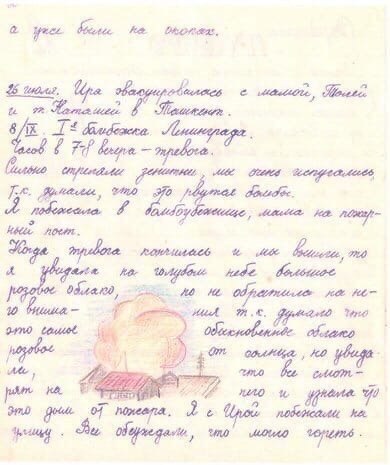 а уже были на окопах.
26 июля. Ира эвакуировалась с мамой, Толей
и т. Наташей в Ташкент.
8/IX. Iая бомбежка Ленинграда.
Часов в 7-8 вечера – тревога.
Сильно стреляли зенитки, мы очень испугались,
т.к. думали, что это рвутся бомбы.
Я побежала в бомбоубежище, мама на пожар-
ный пост.
Когда тревога кончилась и мы вышли, то
я увидала на голубом небе большое
розовое облако, но не обратила на не-
го внима- ния т.к. думала что
это самое обикновенное облако
розовое от солнца, но увида-
ли, что все смот-
рят на него и узнала что
это дым от пожара. Я с Ирой побежали на
улицу. Все обсуждали, что могло гореть.